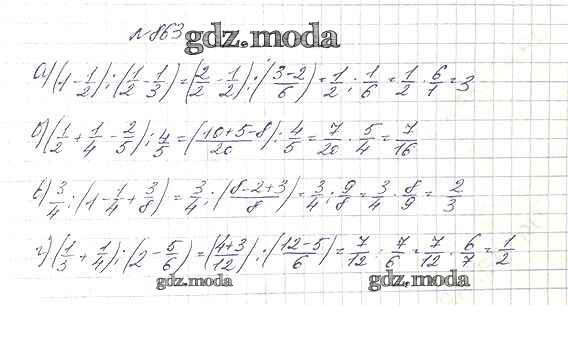 №863 gdz.moda
а) (1 - 1/2) : (1/2 - 1/3) = (2/2 - 1/2) : (3-2/6) = 1/2 : 1/6 = 1/2 · 6/1 = 3
б) (1/2 + 1/4 - 2/5) : 4/5 = (10+5-8/20) : 4/5 = 7/20 · 5/4 = 7/16
в) 3/4 : (1 - 1/4 + 3/8) = 3/4 : (8-2+3/8) = 3/4 : 9/8 = 3/4 · 8/9 = 2/3
г) (1/3 + 1/4) : (2 - 5/6) = (4+3/12) : (12-5/6) = 7/12 : 7/6 = 7/12 · 6/7 = 1/2
gdz.moda gdz.moda